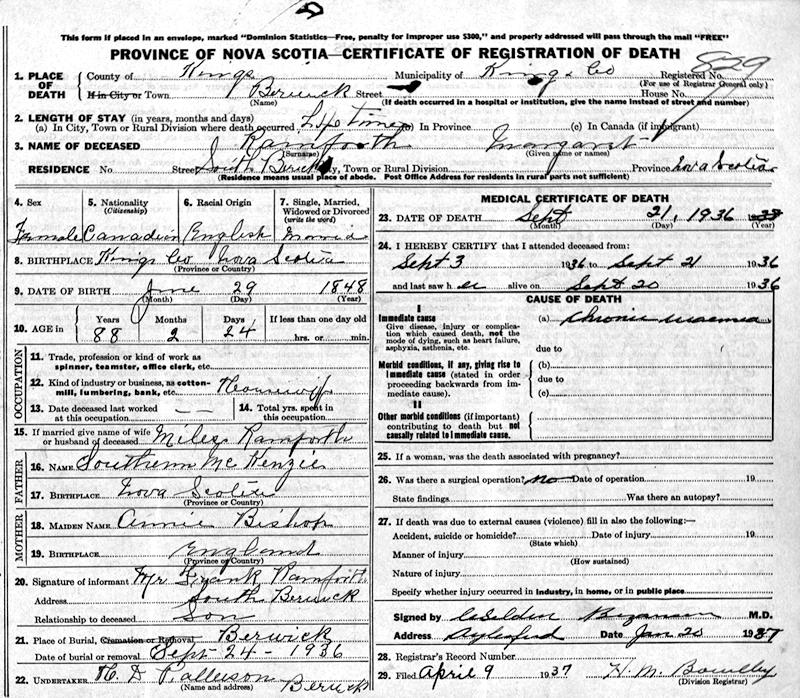 This form if placed in an envelope, marked "Dominion Statistics—Free, penalty for improper use $300," and properly addressed will pass through the mail "FREE"
PROVINCE OF NOVA SCOTIA—CERTIFICATE OF REGISTRATION OF DEATH
829
1. PLACE OF DEATH County of Kings Municipality of Kings Co Registered No.
(For use of Registrar General only)
If in City or Town Berwick Street House No.
(Name) (If death occurred in a hospital or institution, give the name instead of street and number)
2. LENGTH OF STAY (in years, months and days)
(a) In City, Town or Rural Division where death occurred Life Time (b) In Province (c) In Canada (if immigrant)
3. NAME OF DECEASED Margaret
(Surname) (Given name or names)
RESIDENCE No Street South Berwick City, Town or Rural Division Province Nova Scotia
(Residence means usual place of abode. Post Office Address for residents in rural parts not sufficient)
4. Sex 5. Nationality (Citizenship) 6. Racial Origin 7. Single, Married, Widowed or Divorced (write the word)
Female Canadian English Married
8. BIRTHPLACE Kings Co Nova Scotia
(Province or Country)
9. DATE OF BIRTH June 29 1848
(Month) (Day) (Year)
10. AGE in Years Months Days If less than one day old
88 2 24 hrs. or min.
OCCUPATION
11. Trade, profession or kind of work as spinner, teamster, office clerk, etc.
12. Kind of industry or business, as cotton-mill, lumbering, bank, etc. Housewife
13. Date deceased last worked at this occupation — — 14. Total yrs. spent in this occupation
15. If married give name of wife or husband of deceased Miles
FATHER
16. NAME Southern McKenzie
17. BIRTHPLACE Nova Scotia
(Province or Country)
MOTHER
18. MAIDEN NAME Annie Bishop
19. BIRTHPLACE England
(Province or Country)
20. Signature of informant Mr Frank
Address South Berwick
Relationship to deceased Son
21. Place of Burial, Cremation or Removal Berwick
Date of burial or removal Sept 24 - 1936
22. UNDERTAKER Berwick
(Name and address)
MEDICAL CERTIFICATE OF DEATH
23. DATE OF DEATH Sept 21, 1936
(Month) (Day) (Year)
24. I HEREBY CERTIFY that I attended deceased from:
Sept 3 1936 to Sept 21 1936
and last saw her alive on Sept 20 1936
CAUSE OF DEATH
I
Immediate cause (a) Chronic
Give disease, injury or complication which caused death, not the mode of dying, such as heart failure, asphyxia, asthenia, etc.
due to
Morbid conditions, if any, giving rise to immediate cause (stated in order proceeding backwards from immediate cause). (b)
due to
(c)
II
Other morbid conditions (if important) contributing to death but not causally related to immediate cause.
25. If a woman, was the death associated with pregnancy?
26. Was there a surgical operation? no Date of operation 19
State findings Was there an autopsy?
27. If death was due to external causes (violence) fill in also the following:—
Accident, suicide or homicide? Date of injury 19
(State which)
Manner of injury
(How sustained)
Nature of injury
Specify whether injury occurred in industry, in home, or in public place
Signed by M.D.
Address Date Jan 20 1937
28. Registrar's Record Number
29. Filed April 9 1937 H. M.
(Division Registrar)